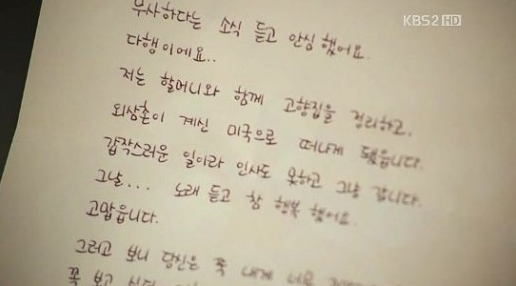 KBS2 HD
무사하다는 소식 듣고 안심 했어요.
다행이에요..
저는 할머니와 함께 고향집을 정리하고,
외삼촌이 계신 미국으로 떠나게 됐읍니다.
갑작스러운 일이라 인사도 못하고 그냥 갑니다.
그날... 노래 듣고 참 행복 했어요.
고맙읍니다.
그러고 보니 당신은 꼭 내게 너무
꼭 보고